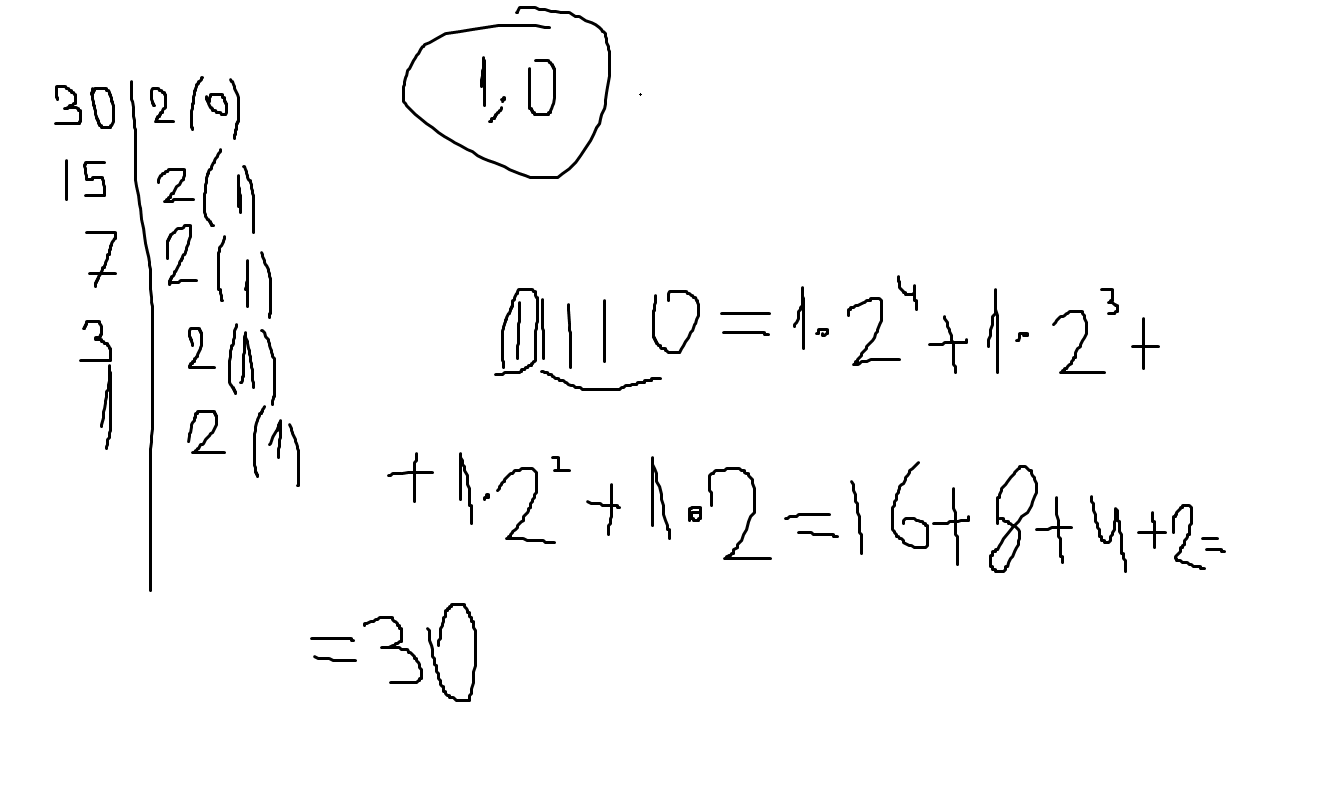 1,0
30 | 2 (0)
15 | 2 (1)
7 | 2 (1)
3 | 2 (1)
1 | 2 (1)
11110 = 1·2⁴ + 1·2³ +
+ 1·2² + 1·2 = 16 + 8 + 4 + 2 =
= 30